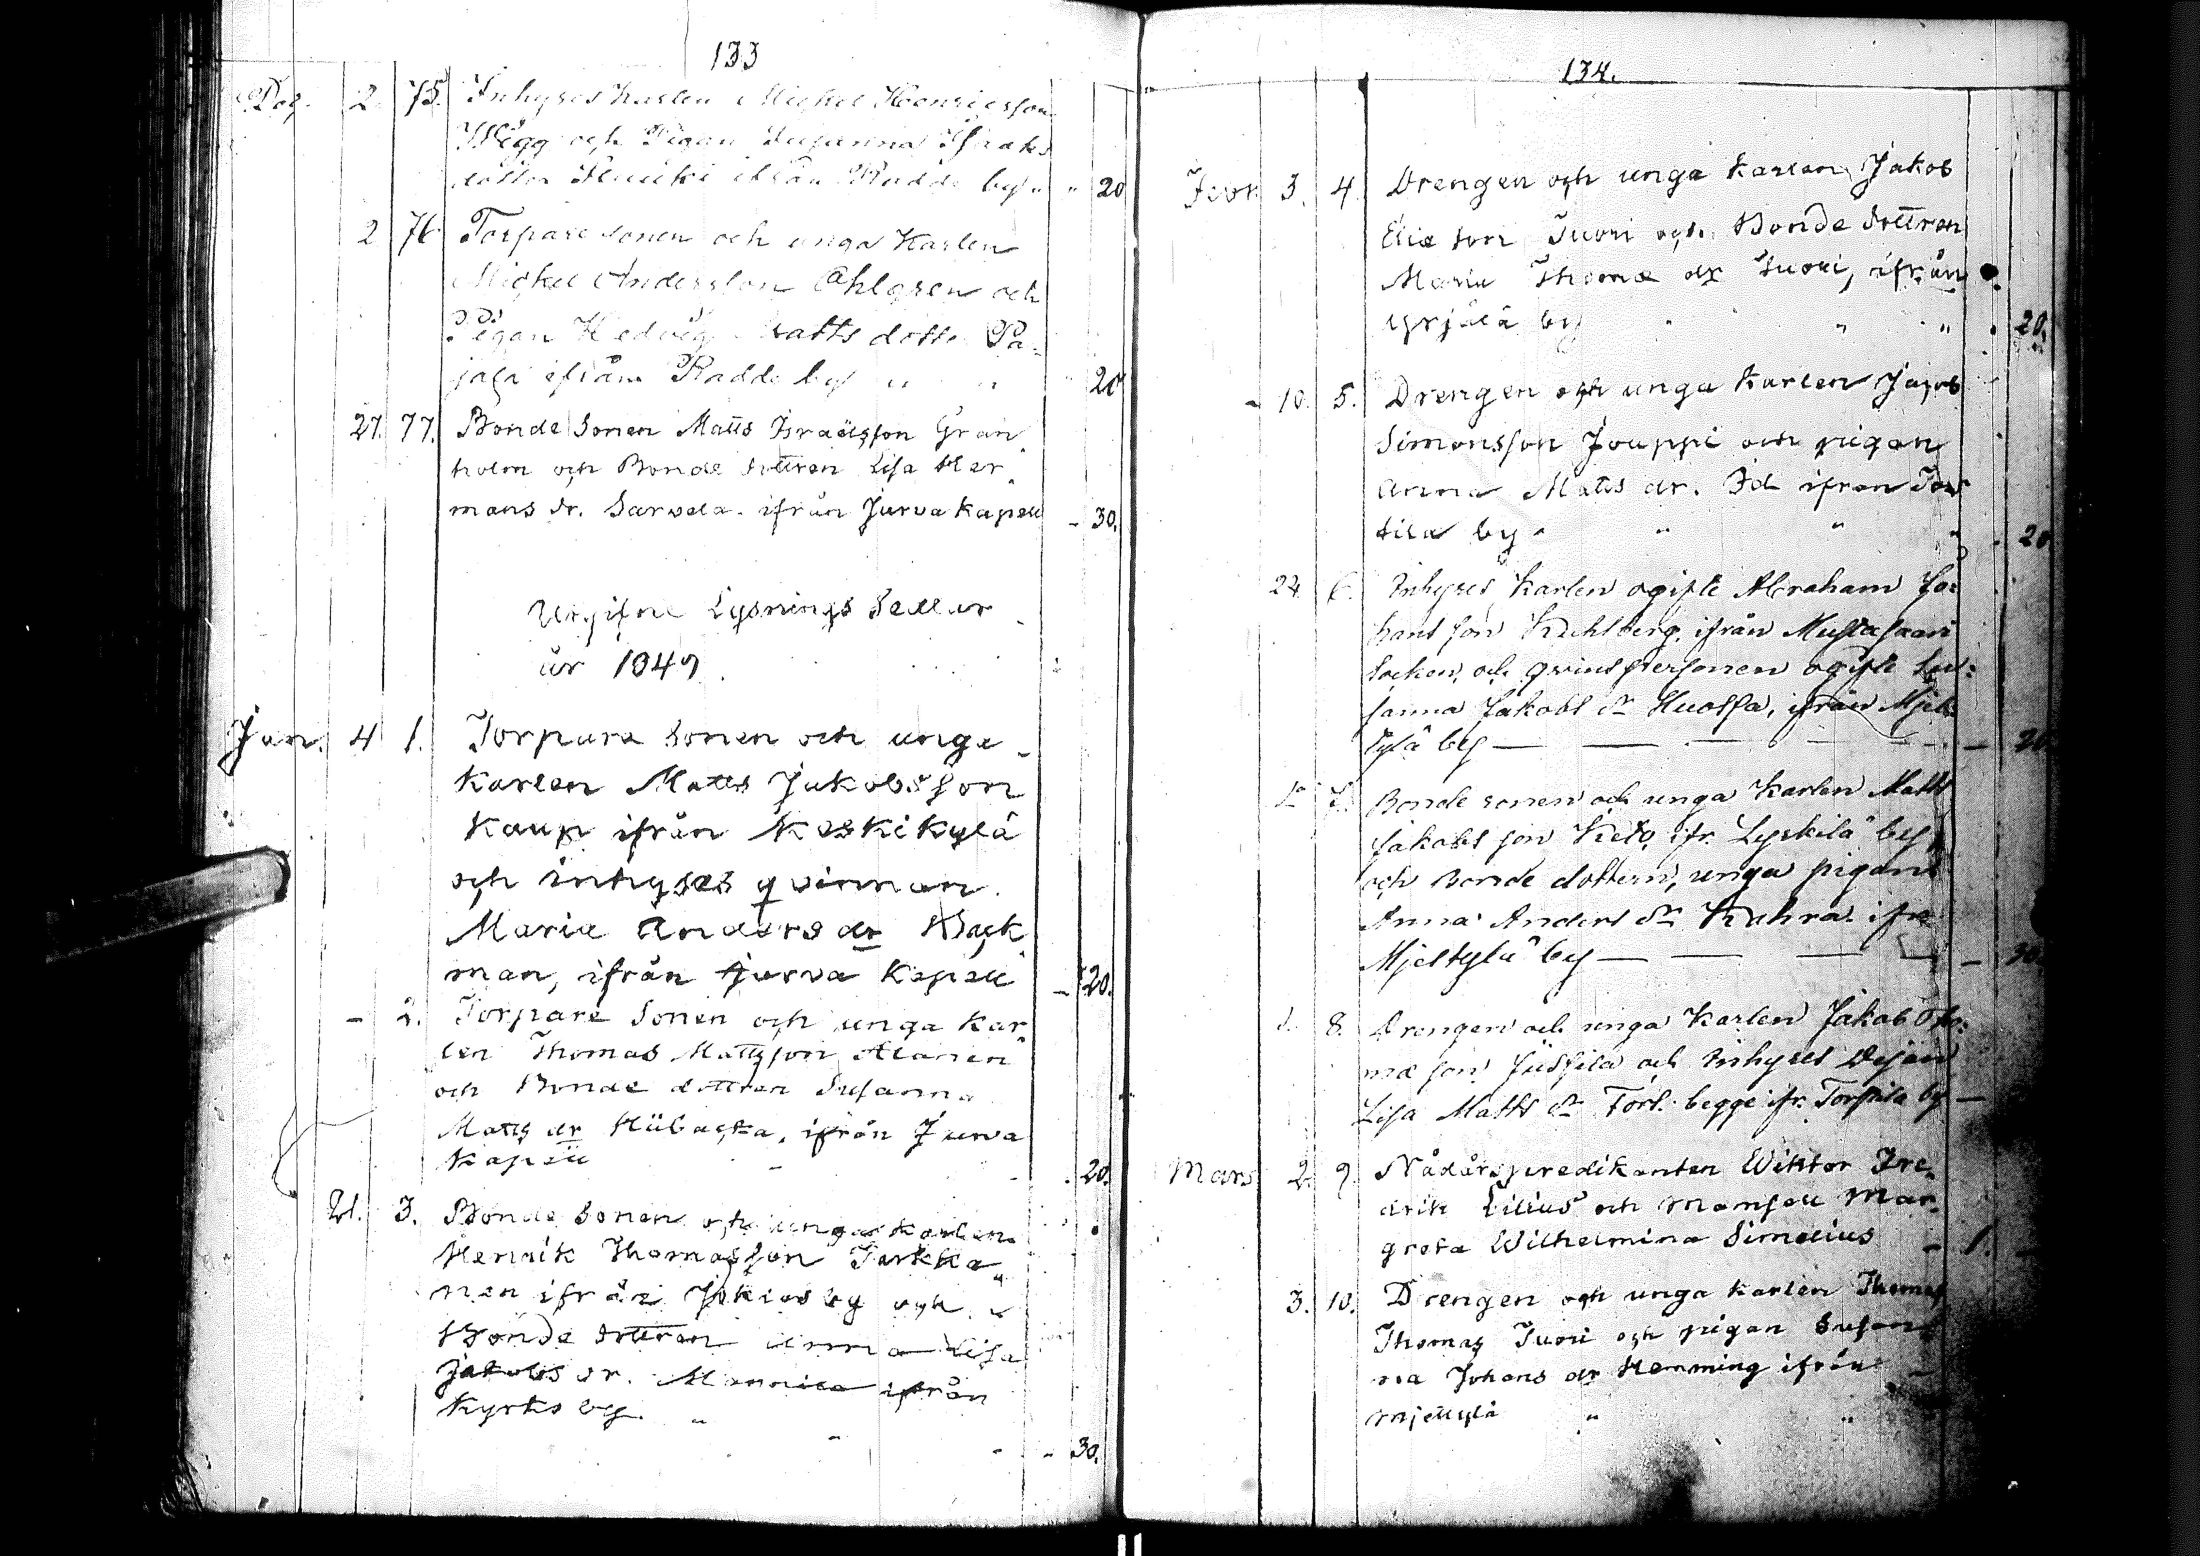 133
Dec. 2. 75. Inhyses karlen Michel Henricsson
Wägg och Pigan Susanna Israks
dotter ifrån Radde by " " 20
2 76 Torpare sonen och unga Karlen
Michel Andersson Ahlgren och
Pigan Hedvig Matts dotter Pa-
jala ifrån Radde by " " 20
27. 77. Bonde Sonen Matts Israelsson Gran
holm och Bonde dottren Lisa Her
mans dr. Sarvela ifrån Jurva Kapell - 30.
Utgifne Lysnings Sedlar
år 1849.
Jan. 4 1. Torpare Sonen och unga
Karlen Matts Jakobsson
Kaup ifrån Keskikylä
och inhyses qvinnan
Maria Anders dr Back
man, ifrån Jurva Kapell - 20.
- 2. Torpare Sonen och unga Kar
len Thomas Mattsson Alanen
och Bonde dottren Susanna
Matts dr Hiibacka, ifrån Jurva
Kapell - - . 20.
21. 3. Bonde Sonen och unga karlen
Henrik Thomasson Tarkka
nen ifrån by och
Bonde dottren Anna Lisa
Jakobs dr. Mannila ifrån
Kyrko by. " - - - 30.
134.
Febr. 3. 4. Drengen och unga karlen Jakob
Eliæ son Tuori och Bonde dottren
Maria Thomæ dr Tuori, ifrån
Yrjälä by " " " . 20.
- 10. 5. Drengen och unga Karlen Jacob
Simonsson Jouppi och pigan
Anna Matts dr. ifrån
tila by " " " " . 20
24. 6. Inhyses Karlen ogifte Abraham Jo:
hans son Kuhlberg, ifrån Mustasaari
Socken, och qvinspersonen ogifte Su:
sanna Jakobs dr Huossa, ifrån Mjel
kylä by — — — — 20
7. Bonde sonen och unga Karlen Matts
Jakobs son Keto ifr. Lyskilä by,
och Bonde dottern, unga pigan
Anna Anders dr Kuhra ifr
Mjelkylä by — — — — 30.
8. Drengen och unga Karlen Jakob Tho:
mæ son och Inhyses Dejan
Lisa Matts dr Fors. begge ifr. by —
Mars 2. 9. Nådårspredikanten Wiktor Fre
drik Lilius och Mamsell Mar
greta Wilhelmina Simelius - 1. -
3. 10. Drengen och unga karlen Thomas
Thomas Tuori och pigan Susan
na Johans dr Hemming ifrån
Mjelkylä " "